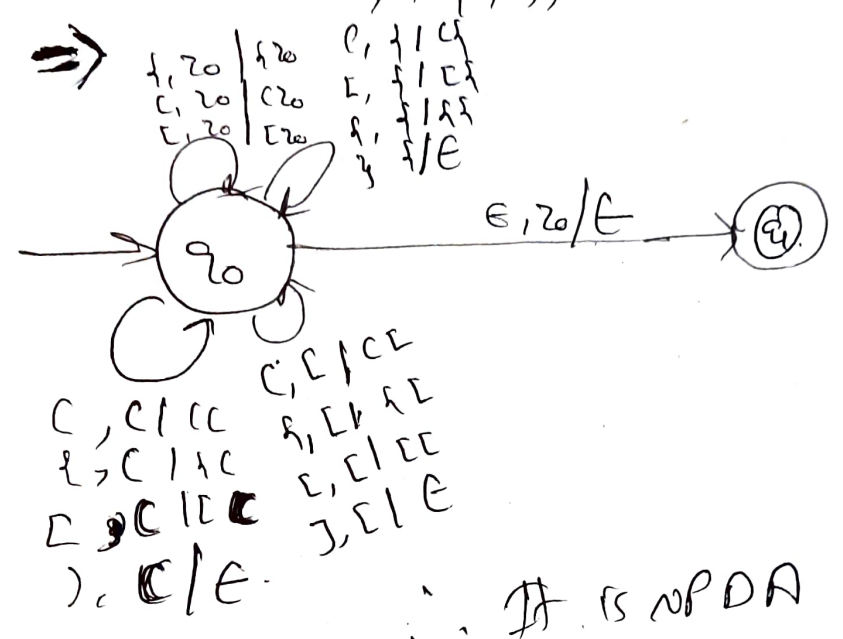 ⇒
{, z0 | {z0
(, z0 | (z0
[, z0 | [z0
(, { | ({
[, { | [{
{, { | {{
} {/ε
q0
ε, z0/ε
(, ( | ((
{, ( | {(
[, ( | [(
), (/ε.
(, [ | ([
{, [ | {[
[, [ | [[
], [ | ε
∴ It is NPDA